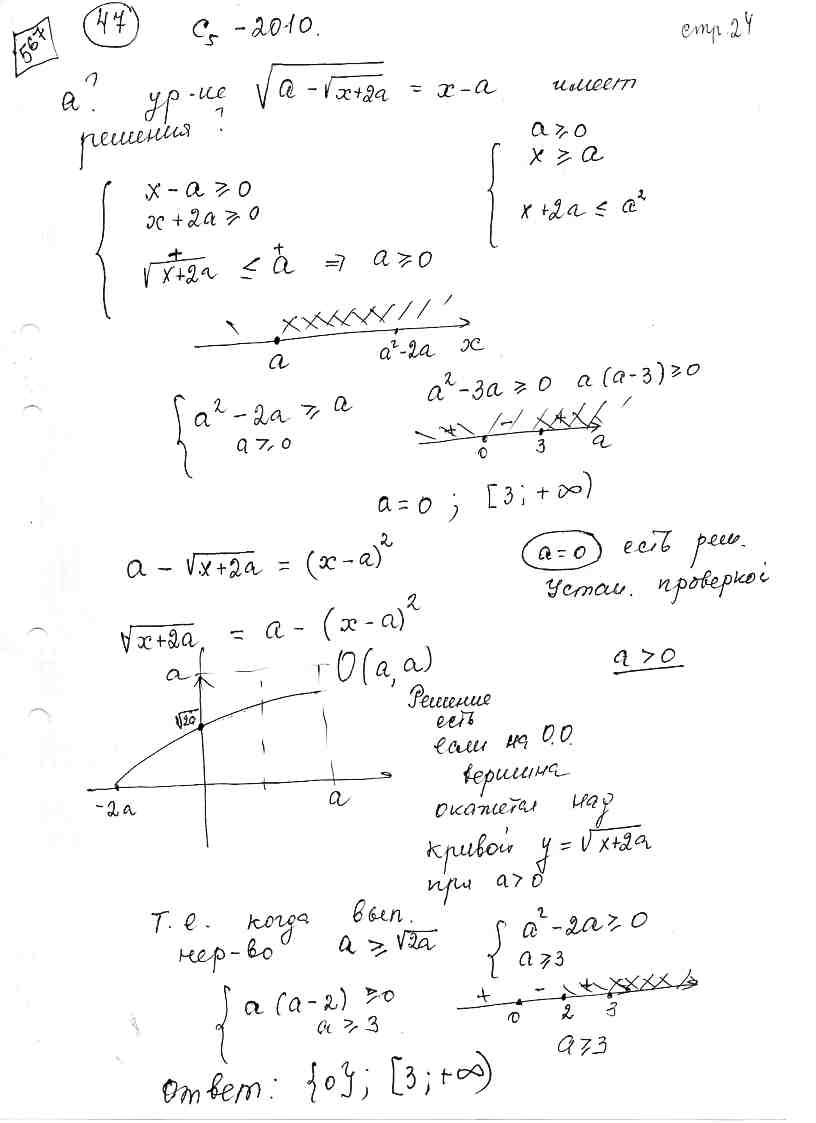 567 47 C5 - 2010. стр. 24
a? ур-ие √(a - √(x+2a)) = x - a имеет
решения ?
a ≥ 0
{ x - a ≥ 0 { x ≥ a
x + 2a ≥ 0 x + 2a ≤ a²
√(x+2a) ≤ a ⇒ a ≥ 0
+ +
a a² - 2a x
{ a² - 2a ≥ a a² - 3a ≥ 0 a (a-3) ≥ 0
a ≥ 0 + - +
0 3 a
a = 0 ; [3 ; +∞)
a - √(x+2a) = (x-a)² a = 0 есть реш.
Устан. проверкой
√(x+2a) = a - (x-a)²
a > 0
a O(a, a)
√2a
-2a a
Решение
есть
если на О.О.
вершина
окажется над
кривой y = √(x+2a)
при a > 0
Т. е. когда вып.
нер-во a ≥ √2a { a² - 2a ≥ 0
a ≥ 3
{ a (a-2) ≥ 0 + - +
a ≥ 3 0 2 3
a ≥ 3
Ответ: {0}; [3 ; +∞)